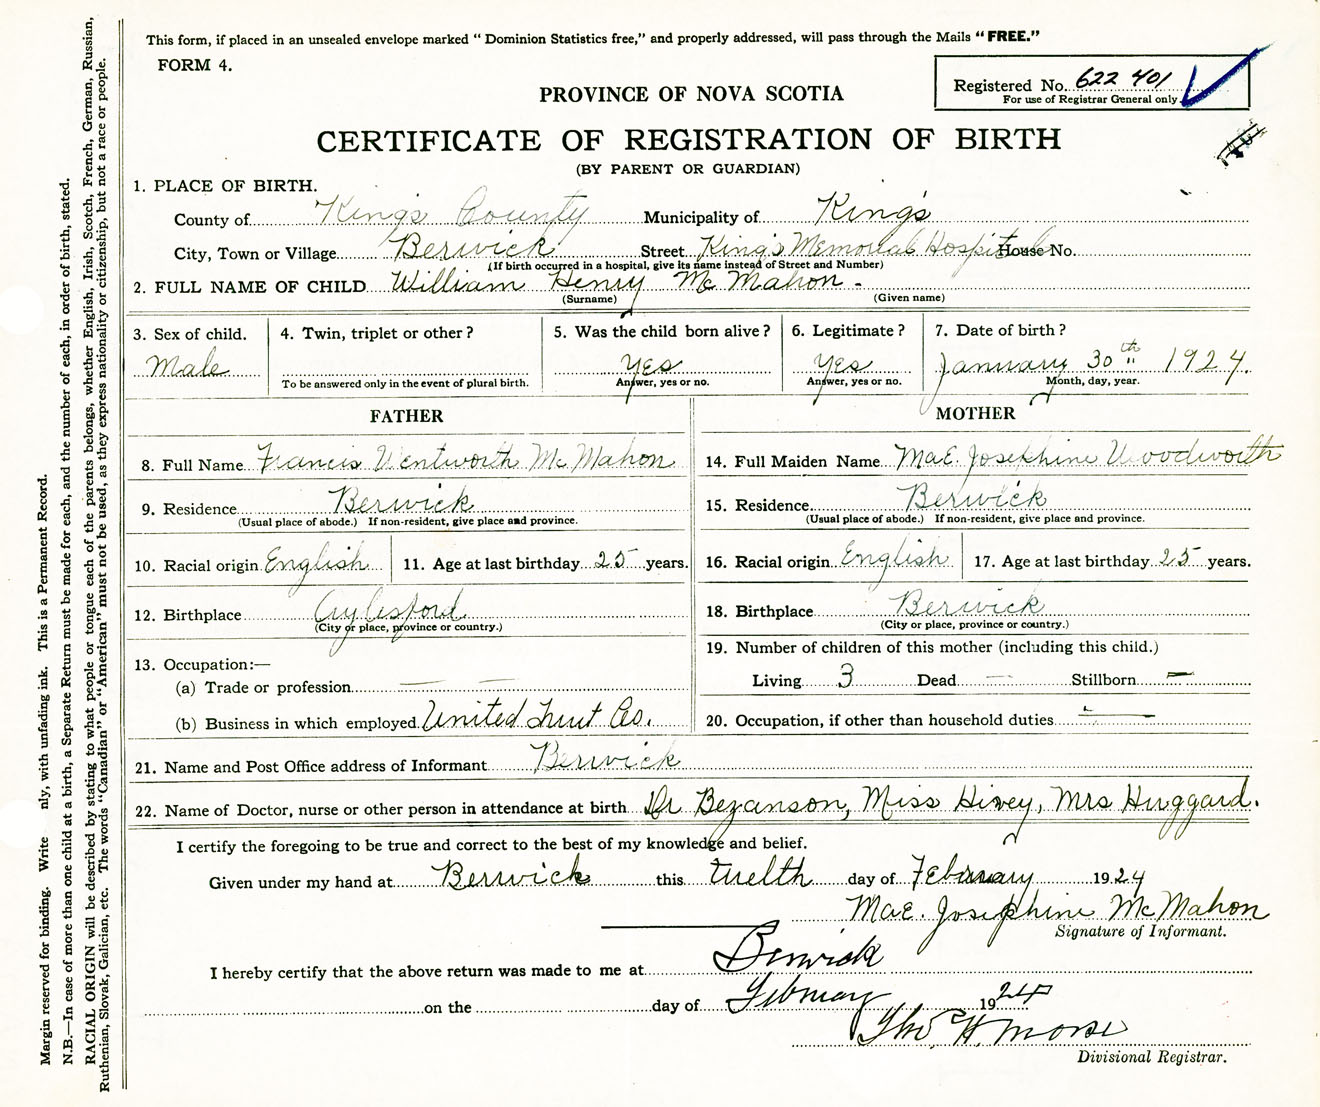 This form, if placed in an unsealed envelope marked “ Dominion Statistics free,” and properly addressed, will pass through the Mails “ FREE.”
FORM 4.
Registered No. 622 401
For use of Registrar General only
PROVINCE OF NOVA SCOTIA
CERTIFICATE OF REGISTRATION OF BIRTH
(BY PARENT OR GUARDIAN)
1. PLACE OF BIRTH.
County of King's County Municipality of King's
City, Town or Village Berwick Street King's Memorial Hospital House No.
(If birth occurred in a hospital, give its name instead of Street and Number)
2. FULL NAME OF CHILD William Henry Mc Mahon -
(Surname) (Given name)
3. Sex of child. 4. Twin, triplet or other ? 5. Was the child born alive ? 6. Legitimate ? 7. Date of birth ?
Male Yes Yes January 30th 1924.
To be answered only in the event of plural birth. Answer, yes or no. Answer, yes or no. Month, day, year.
FATHER MOTHER
8. Full Name Francis Wentworth Mc Mahon 14. Full Maiden Name Mae. Josephine Woodworth
9. Residence Berwick 15. Residence Berwick
(Usual place of abode.) If non-resident, give place and province. (Usual place of abode.) If non-resident, give place and province.
10. Racial origin English 11. Age at last birthday 25 years. 16. Racial origin English 17. Age at last birthday 25 years.
12. Birthplace Aylesford 18. Birthplace Berwick
(City or place, province or country.) (City or place, province or country.)
13. Occupation:— 19. Number of children of this mother (including this child.)
(a) Trade or profession — — Living 3 Dead — Stillborn —
(b) Business in which employed United Fruit Co. 20. Occupation, if other than household duties —
21. Name and Post Office address of Informant Berwick
22. Name of Doctor, nurse or other person in attendance at birth Dr Bezanson, Miss Hivey, Mrs Huggard.
I certify the foregoing to be true and correct to the best of my knowledge and belief.
Given under my hand at Berwick this twelth day of February 1924
Mae. Josephine Mc Mahon
Signature of Informant.
I hereby certify that the above return was made to me at Berwick
on the day of February 1924
Thos. H. Morse
Divisional Registrar.
Margin reserved for binding. Write nly, with unfading ink. This is a Permanent Record.
N.B.—In case of more than one child at a birth, a Separate Return must be made for each, and the number of each, in order of birth, stated.
RACIAL ORIGIN will be described by stating to what people or tongue each of the parents belongs, whether English, Irish, Scotch, French, German, Russian,
Ruthenian, Slovak, Galician, etc. The words “Canadian” or “American” must not be used, as they express nationality or citizenship, but not a race or people.